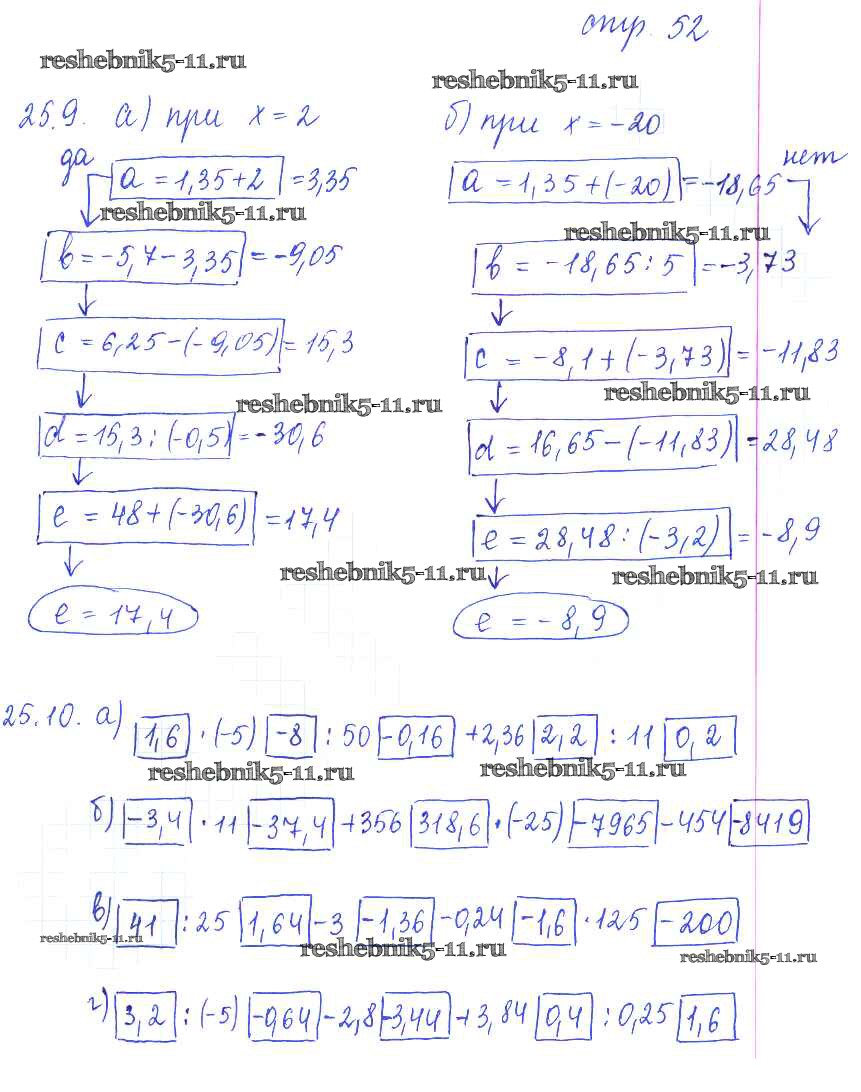 стр. 52
reshebnik5-11.ru
reshebnik5-11.ru
25.9. а) при x = 2
да
a = 1,35+2 = 3,35
reshebnik5-11.ru
b = -5,7-3,35 = -9,05
c = 6,25-(-9,05) = 15,3
reshebnik5-11.ru
d = 15,3 : (-0,5) = -30,6
e = 48+(-30,6) = 17,4
reshebnik5-11.ru
e = 17,4
б) при x = -20
нет
a = 1,35+(-20) = -18,65
reshebnik5-11.ru
b = -18,65 : 5 = -3,73
c = -8,1+(-3,73) = -11,83
reshebnik5-11.ru
d = 16,65-(-11,83) = 28,48
e = 28,48 : (-3,2) = -8,9
reshebnik5-11.ru
e = -8,9
25.10. а) 1,6 · (-5) -8 : 50 -0,16 +2,36 2,2 : 11 0,2
reshebnik5-11.ru reshebnik5-11.ru
б) -3,4 · 11 -37,4 +356 318,6 · (-25) -7965 -454 -8419
в) 41 : 25 1,64 -3 -1,36 -0,24 -1,6 · 125 -200
reshebnik5-11.ru reshebnik5-11.ru reshebnik5-11.ru
г) 3,2 : (-5) -0,64 -2,8 -3,44 +3,84 0,4 : 0,25 1,6